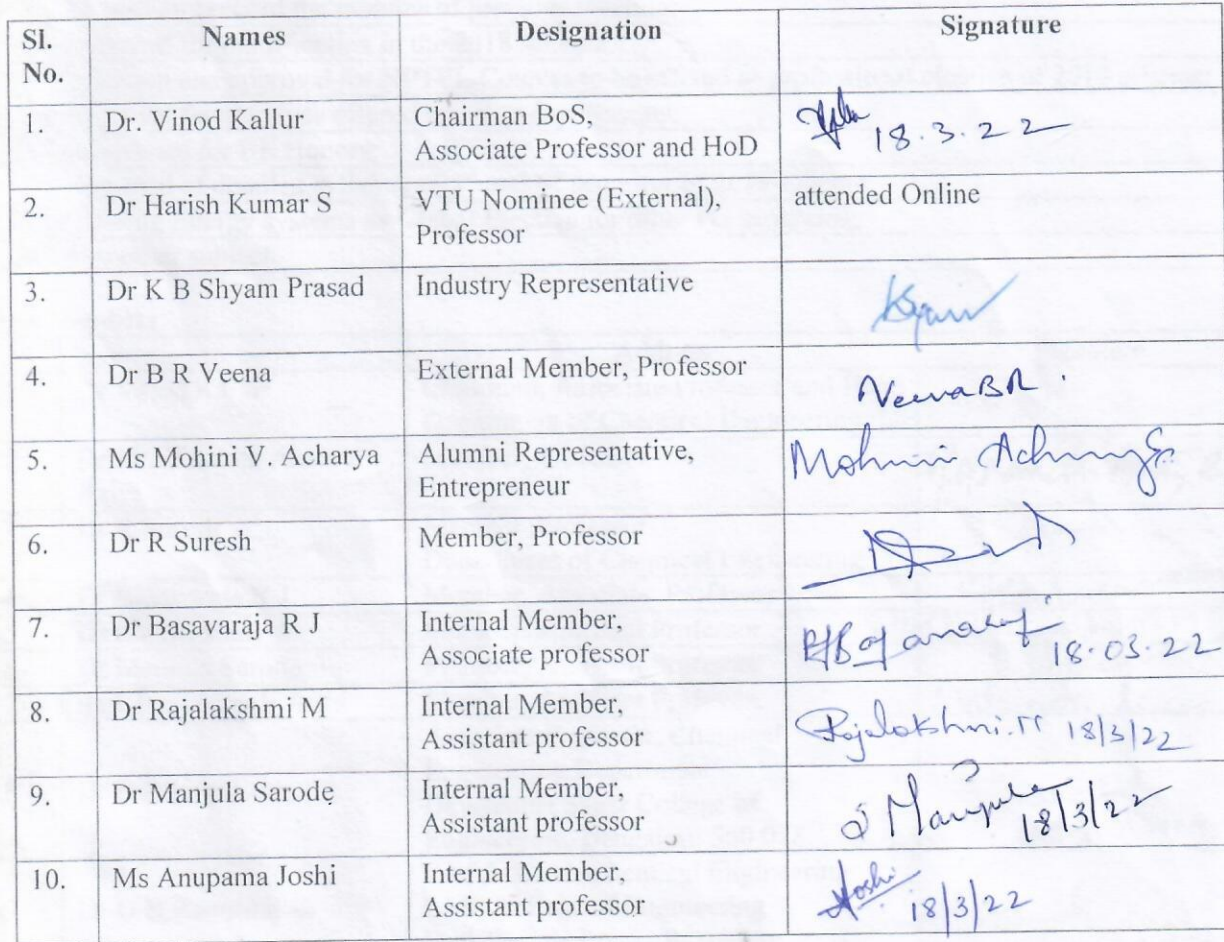 Sl. No. Names Designation Signature
1. Dr. Vinod Kallur Chairman BoS, 18.3.22
Associate Professor and HoD
2. Dr Harish Kumar S VTU Nominee (External), attended Online
Professor
3. Dr K B Shyam Prasad Industry Representative
4. Dr B R Veena External Member, Professor Veena BR
5. Ms Mohini V. Acharya Alumni Representative, Mohini
Entrepreneur
6. Dr R Suresh Member, Professor
7. Dr Basavaraja R J Internal Member,
Associate professor 18.03.22
8. Dr Rajalakshmi M Internal Member, Rajalakshmi.M 18/3/22
Assistant professor
9. Dr Manjula Sarode Internal Member, S Manjula
Assistant professor 18/3/22
10. Ms Anupama Joshi Internal Member, Joshi
Assistant professor 18/3/22